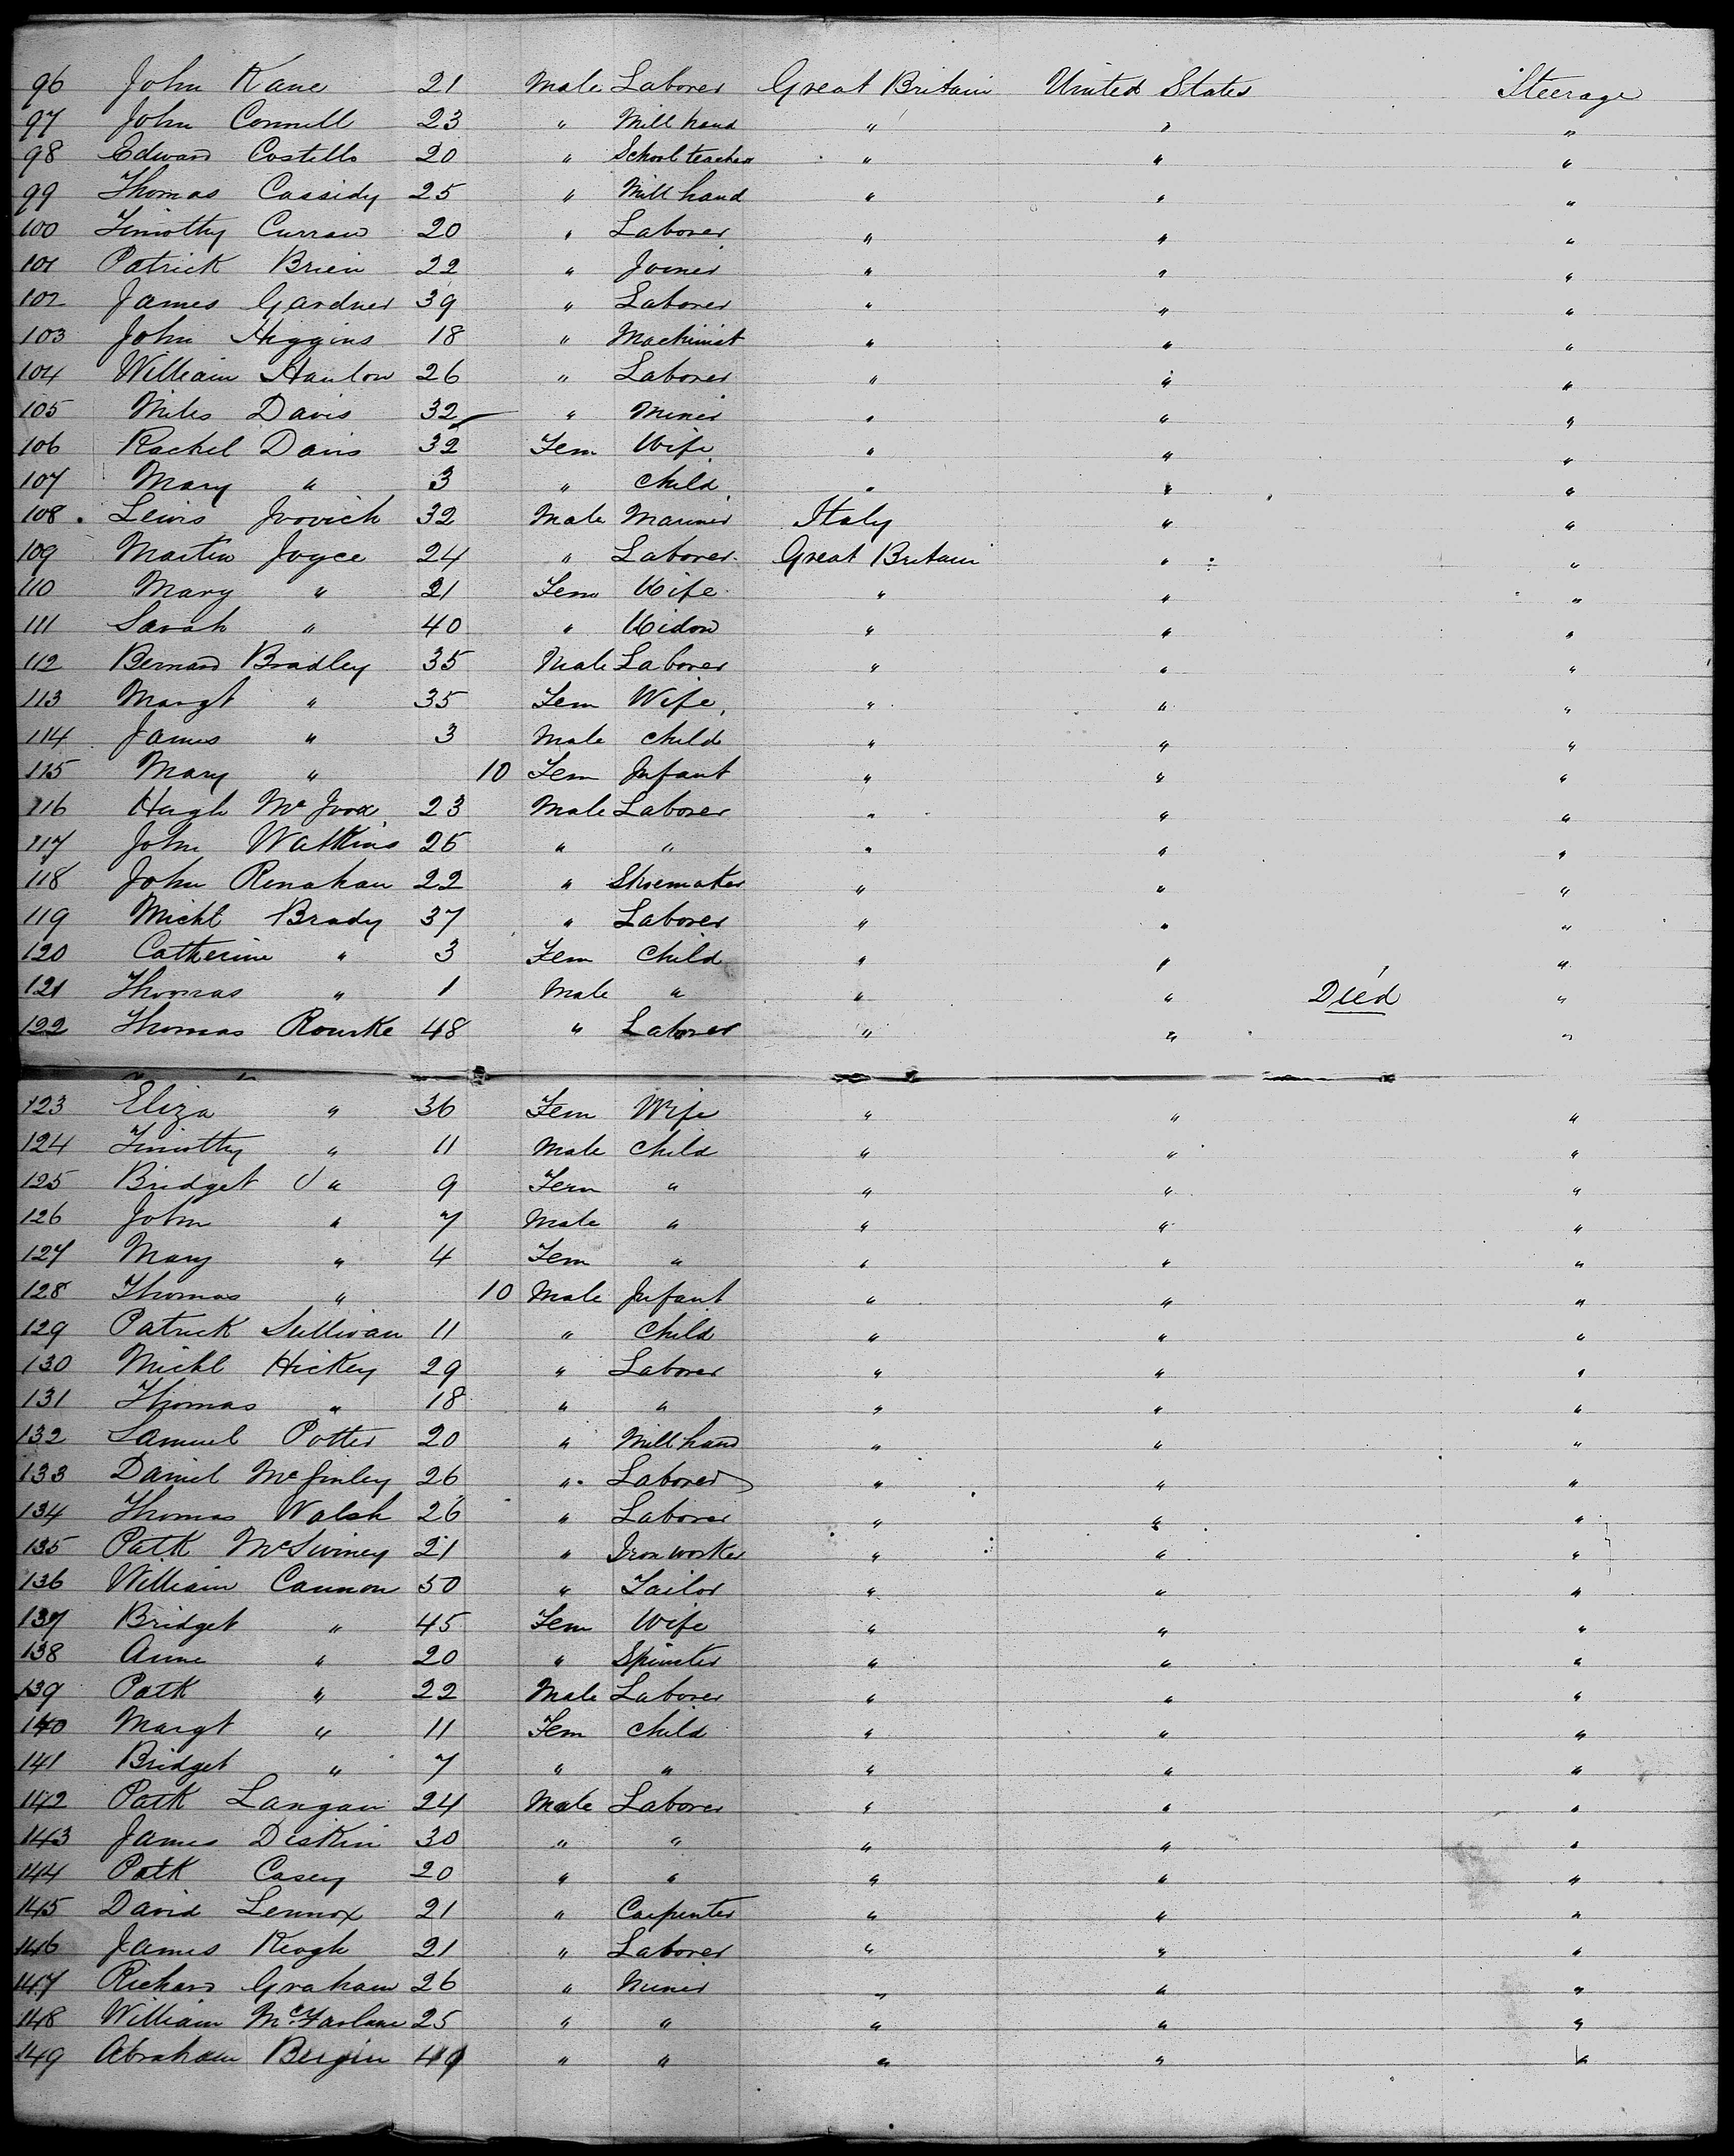 96 John Kane 21 Male Laborer Great Britain United States Steerage
97 John Connell 23 " Mill hand " " "
98 Edward Costello 20 " School teacher " " "
99 Thomas Cassidy 25 " Mill hand " " "
100 Timothy Curran 20 " Laborer " " "
101 Patrick Brien 22 " Joiner " " "
102 James Gardner 39 " Laborer " " "
103 John Higgins 18 " Machinist " " "
104 William Hanlon 26 " Laborer " " "
105 Miles Davis 32 " Miner " " "
106 Rachel Davis 32 Fem Wife " " "
107 Mary " 3 " Child " " "
108 Lewis Ivovich 32 Male Mariner Italy " "
109 Martin Joyce 24 " Laborer Great Britain " "
110 Mary " 21 Fem Wife " " "
111 Sarah " 40 " Widow " " "
112 Bernard Bradley 35 Male Laborer " " "
113 Margt " 35 Fem Wife " " "
114 James " 3 Male Child " " "
115 Mary " 10 Fem Infant " " "
116 Hugh 23 Male Laborer " " "
117 John Watkins 25 " " " " "
118 John Renahan 22 " Shoemaker " " "
119 Michl Brady 37 " Laborer " " "
120 Catherine " 3 Fem Child " " "
121 Thomas " 1 Male " " " Died "
122 Thomas Rourke 48 " Laborer " " "
123 Eliza " 36 Fem Wife " " "
124 Timothy " 11 Male Child " " "
125 Bridget " 9 Fem " " " "
126 John " 7 Male " " " "
127 Mary " 4 Fem " " " "
128 Thomas " 10 Male Infant " " "
129 Patrick Sullivan 11 " Child " " "
130 Michl Hickey 29 " Laborer " " "
131 Thomas " 18 " " " " "
132 Samuel Potter 20 " Mill hand " " "
133 Daniel McGinley 26 " Laborer " " "
134 Thomas Walsh 26 " Laborer " " "
135 Patk McSwiney 21 " Iron worker " " "
136 William Cannon 50 " Tailor " " "
137 Bridget " 45 Fem Wife " " "
138 Anne " 20 " Spinster " " "
139 Patk " 22 Male Laborer " " "
140 Margt " 11 Fem Child " " "
141 Bridget " 7 " " " " "
142 Patk Langan 24 Male Laborer " " "
143 James Diskin 30 " " " " "
144 Patk Casey 20 " " " " "
145 David Lennox 21 " Carpenter " " "
146 James Keogh 21 " Laborer " " "
147 Richard Graham 26 " Miner " " "
148 William McFarlane 25 " " " " "
149 Abraham Bergin 49 " " " " "